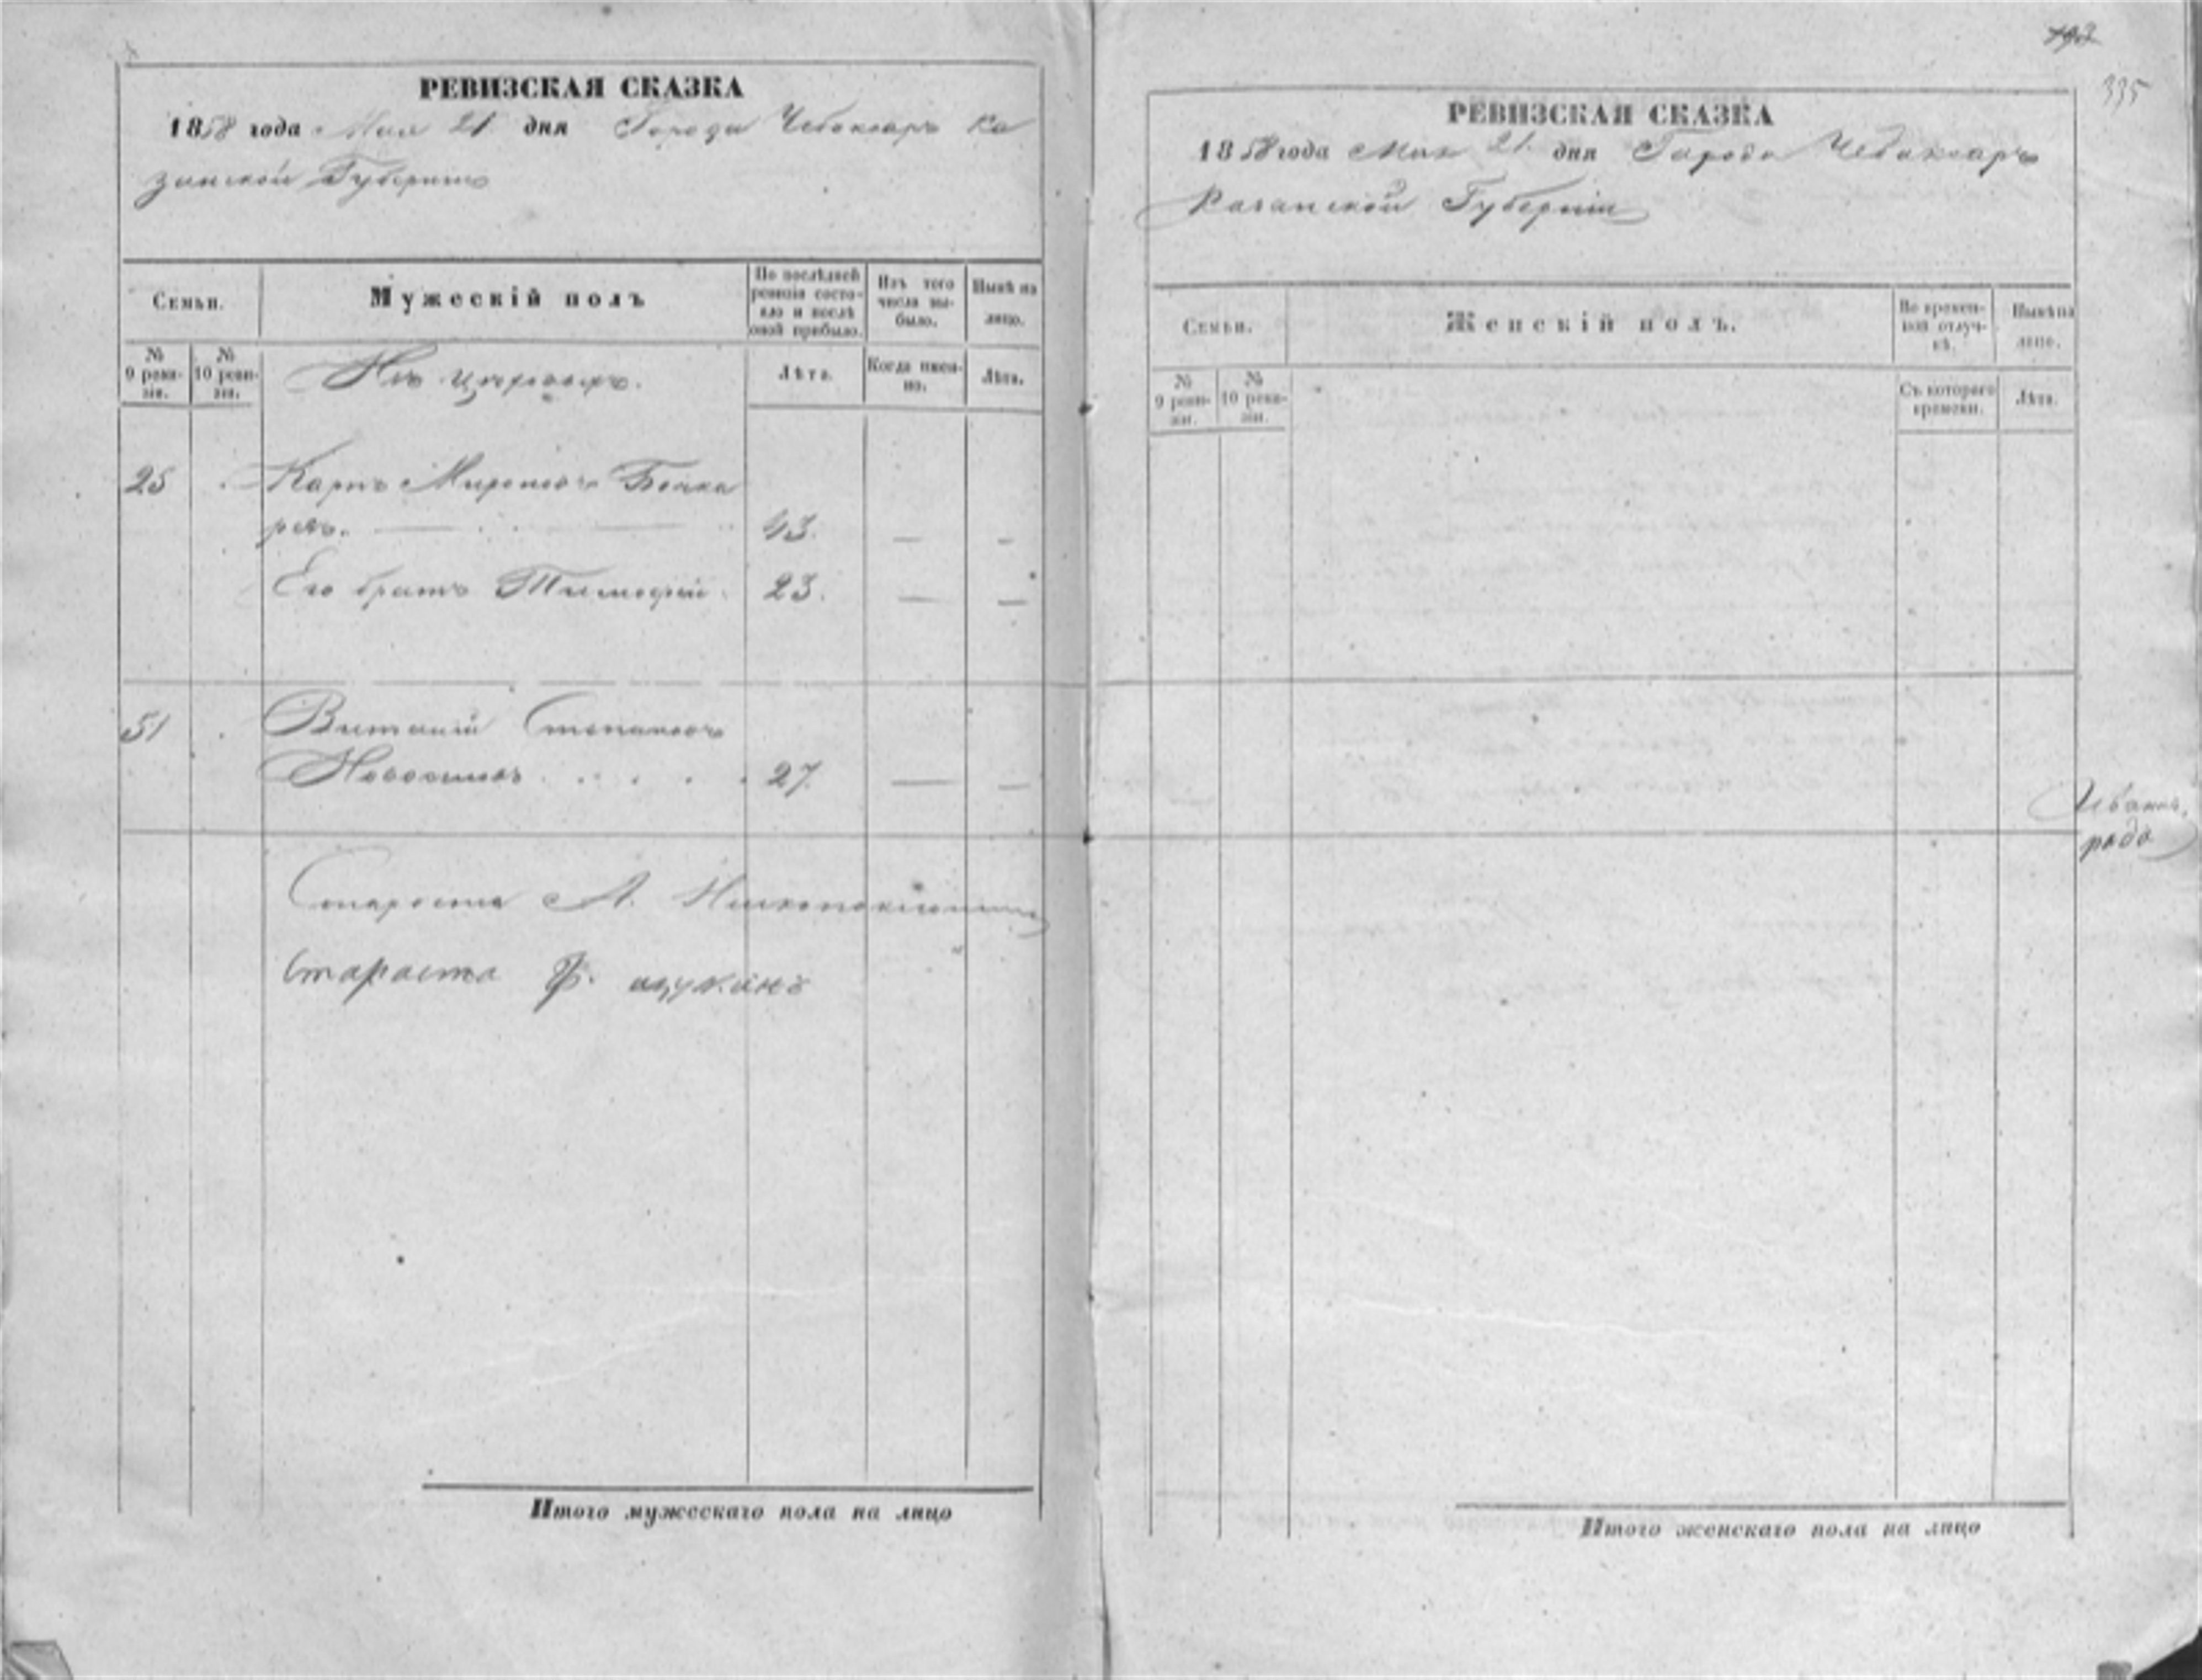 РЕВИЗСКАЯ СКАЗКА
1858 года Мая 21 дня Города Чебоксаръ Ка
занской Губернiи
Семьи.
Мужескій полъ
По послѣдней ревизіи состояло и послѣ оной прибыло.
Изъ того числа выбыло.
Нынѣ на лицо.
№ 9 ревизіи.
№ 10 ревизіи.
Лѣта.
Когда именно.
Лѣта.
25 Карпъ Мироновъ Бочка
ревъ. 43. — —
Его братъ Тимофей 23. — —
51 Виталій Степановъ
27. — —
Староста А.
Стараста Ф. щукинъ
Итого мужескаго пола на лицо
193
335
РЕВИЗСКАЯ СКАЗКА
1858 года Мая 21. дня Города Чебоксаръ
Казанской Губерніи
Семьи.
Женскій полъ.
Во временной отлучкѣ.
Нынѣ на лицо.
№ 9 ревизіи.
№ 10 ревизіи.
Съ котораго времени.
Лѣта.
Итого женскаго пола на лицо